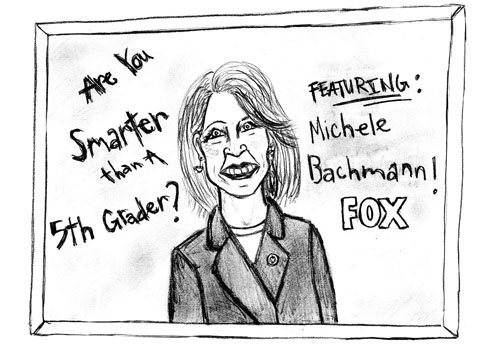 Are You
Smarter
than A
5th Grader?
FEATURING:
Michele
Bachmann!
FOX